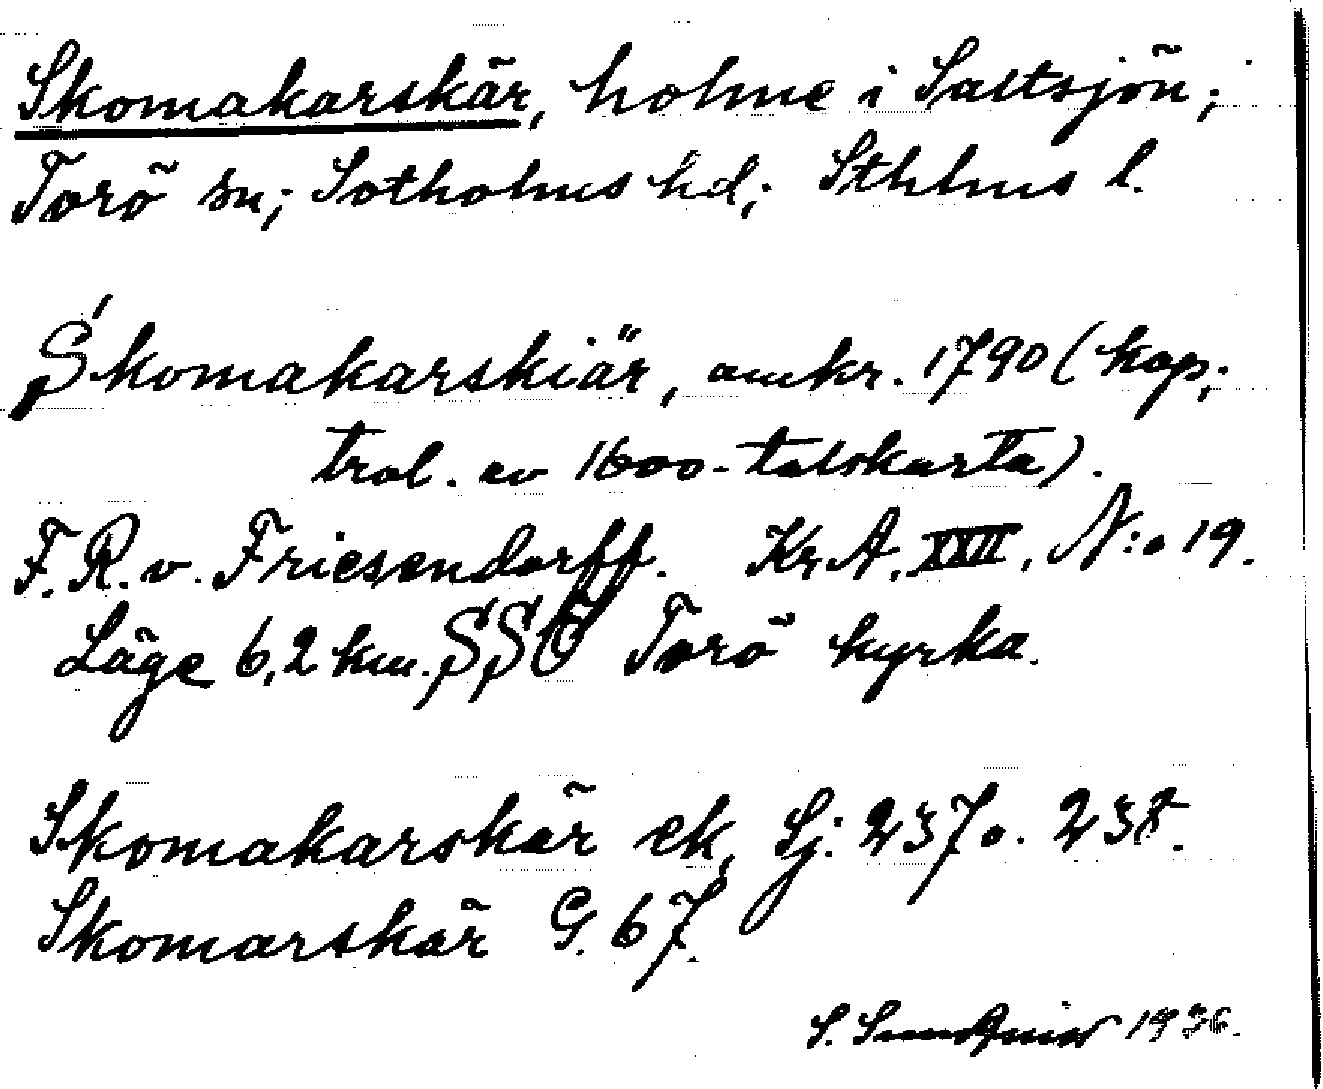 Skomakarskär, holme i Saltsjön;
Torö sn; Sotholms hd; Sthlms l.
Skomakarskiär, omkr. 1790 (kop.
trol. av 1600-talskarta).
F. R. v. Friesendorff. Kr. A. XXII, N:o 19.
Läge 6,2 km. SSÖ Torö kyrka.
Skomakarskär ek, Sj: 237 o. 238.
Skomarskär G. 67.
S. Sundqvist 1936.